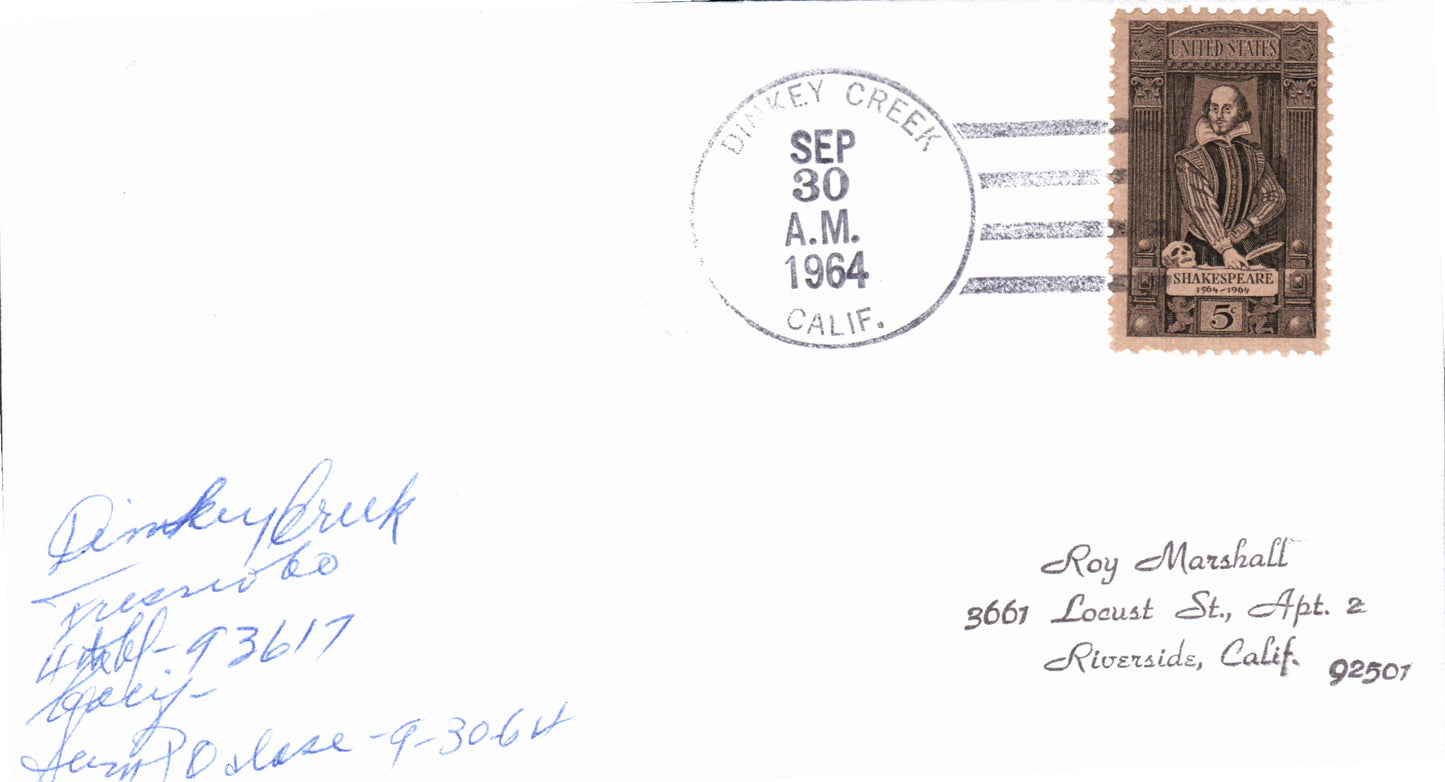 UNITED STATES
SHAKESPEARE
1564-1964
5c
DINKEY CREEK
SEP
30
A.M.
1964
CALIF.
Dinkey Creek
Fresno Co
93617
Calif-
P O close - 9-30-64
Roy Marshall
3661 Locust St., Apt. 2
Riverside, Calif. 92501